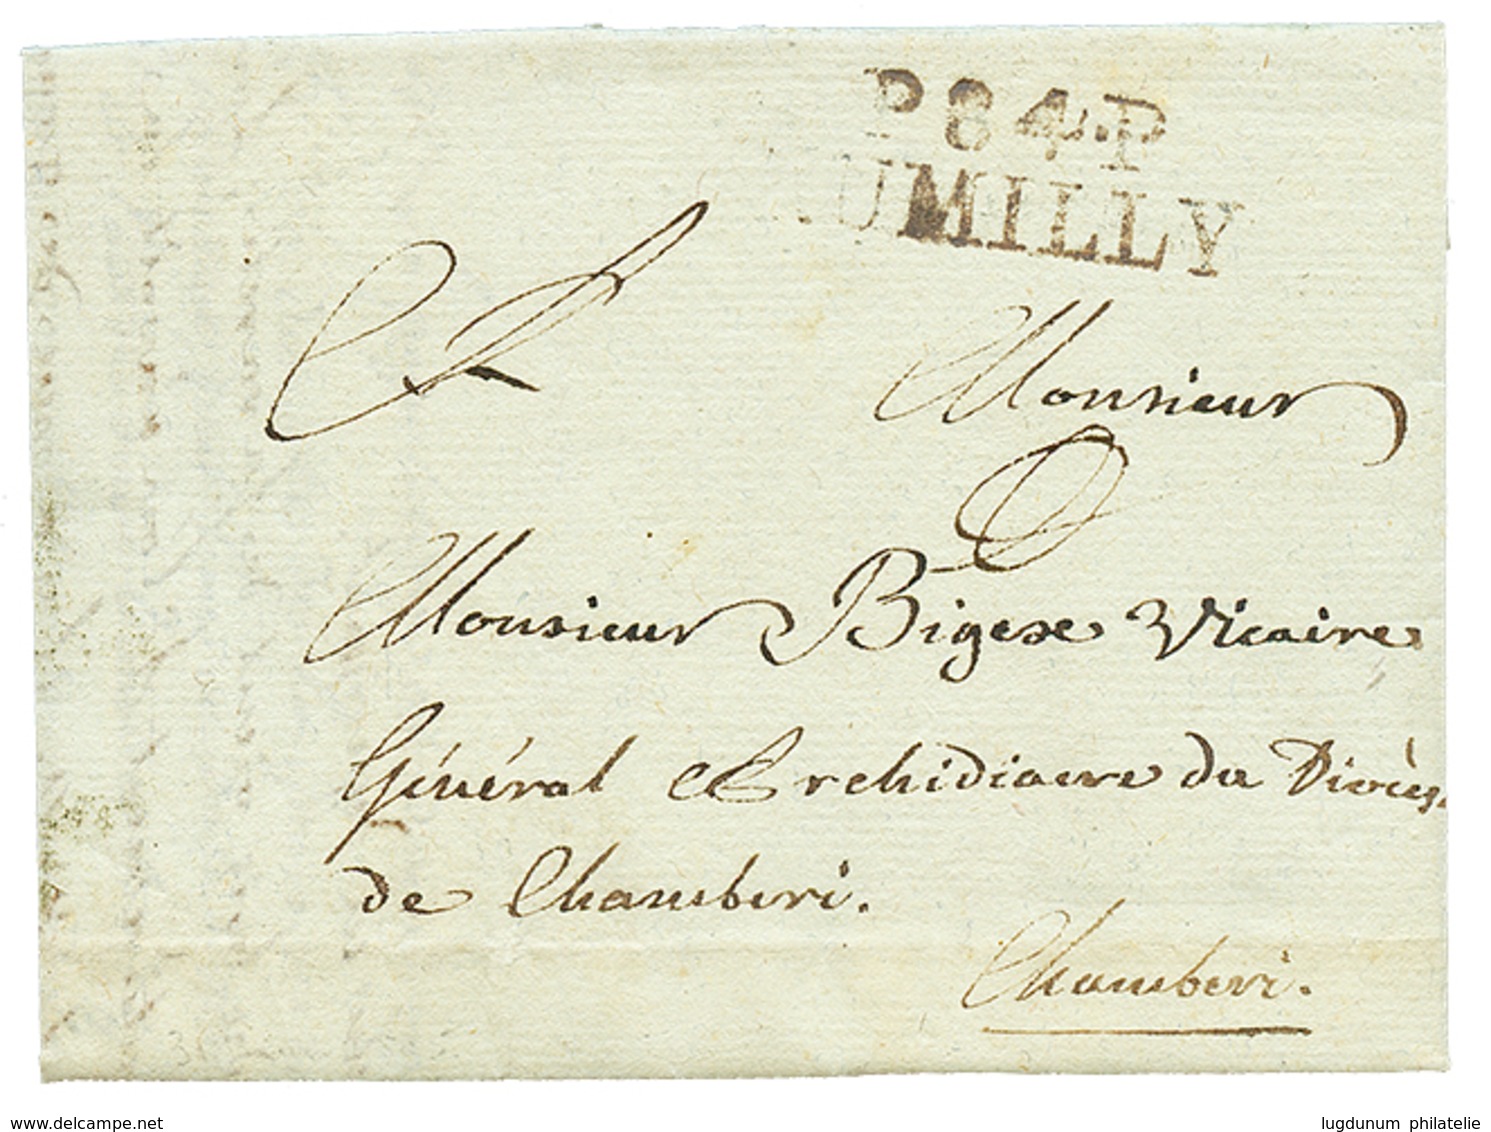 P84P
RUMILLY
Monsieur
Monsieur Bigex Vicaire
Général Archidiacre du Diocès
de Chamberi.
Chamberi.
www.delcampe.net
lugdunum philatelie